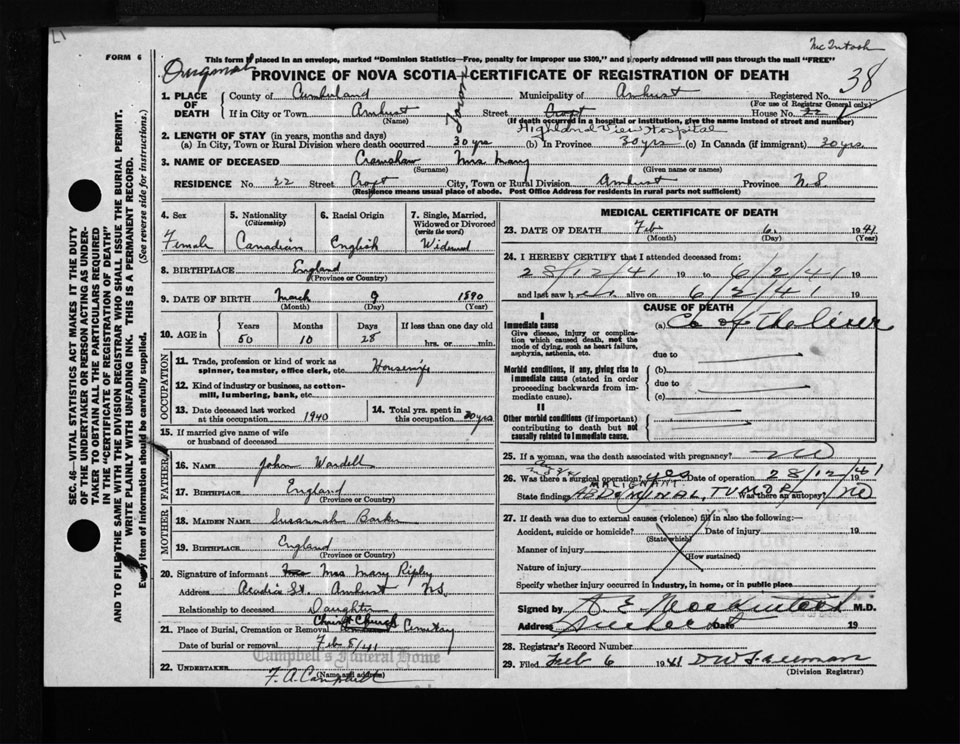 Mc Intosh
FORM 6
This form if placed in an envelope, marked "Dominion Statistics—Free, penalty for improper use $300," and properly addressed will pass through the mail "FREE"
38
PROVINCE OF NOVA SCOTIA—CERTIFICATE OF REGISTRATION OF DEATH
1. PLACE OF DEATH
County of Cumberland Municipality of Amherst Registered No.
(For use of Registrar General only)
If in City or Town Amherst (Name) Street Croft House No. 22
(If death occurred in a hospital or institution, give the name instead of street and number)
Highland View Hospital
2. LENGTH OF STAY (in years, months and days)
(a) In City, Town or Rural Division where death occurred 30 yrs (b) In Province 30 yrs (c) In Canada (if immigrant) 30 yrs.
3. NAME OF DECEASED Crawshaw Mrs. Mary
(Surname) (Given name or names)
RESIDENCE No. 22 Street Croft City, Town or Rural Division Amherst Province N.S.
(Residence means usual place of abode. Post Office Address for residents in rural parts not sufficient)
4. Sex Female
5. Nationality (Citizenship) Canadian
6. Racial Origin English
7. Single, Married, Widowed or Divorced (write the word) Widowed
8. BIRTHPLACE England
(Province or Country)
9. DATE OF BIRTH March 9 1890
(Month) (Day) (Year)
10. AGE in Years 50 Months 10 Days 28 If less than one day old hrs. or min.
OCCUPATION
11. Trade, profession or kind of work as spinner, teamster, office clerk, etc. Housewife
12. Kind of industry or business, as cotton-mill, lumbering, bank, etc.
13. Date deceased last worked at this occupation 1940
14. Total yrs. spent in this occupation 30 yrs
15. If married give name of wife or husband of deceased
FATHER
16. NAME John Wardell
17. BIRTHPLACE England
(Province or Country)
MOTHER
18. MAIDEN NAME Susannah Barker
19. BIRTHPLACE England
(Province or Country)
20. Signature of informant Mrs Mary Ripley
Address Acadia St. Amherst N.S.
Relationship to deceased Daughter
21. Place of Burial, Cremation or Removal Christ Church Cemetery
Date of burial or removal Feb 8/41
Campbell's Funeral Home
22. UNDERTAKER F. A. Campbell
(Name and address)
MEDICAL CERTIFICATE OF DEATH
23. DATE OF DEATH Feb 6. 1941
(Month) (Day) (Year)
24. I HEREBY CERTIFY that I attended deceased from:
28/12/41 19 to 6/2/41 19
and last saw her alive on 6/2/41 19
CAUSE OF DEATH
I
Immediate cause
Give disease, injury or complication which caused death, not the mode of dying, such as heart failure, asphyxia, asthenia, etc.
(a) Ca of the liver
due to
Morbid conditions, if any, giving rise to immediate cause (stated in order proceeding backwards from immediate cause).
(b)
due to
(c)
II
Other morbid conditions (if important) contributing to death but not causally related to immediate cause.
25. If a woman, was the death associated with pregnancy? no
26. Was there a surgical operation? yes Date of operation 28/12/41
MALIGNANT
State findings ABDOMINAL TUMOR Was there an autopsy? no
27. If death was due to external causes (violence) fill in also the following:—
Accident, suicide or homicide? Date of injury 19
(State which)
Manner of injury
(How sustained)
Nature of injury
Specify whether injury occurred in industry, in home, or in public place
Signed by M.D.
Address Amherst Date 19
28. Registrar's Record Number
29. Filed Feb 6 1941
(Division Registrar)
SEC. 46—VITAL STATISTICS ACT MAKES IT THE DUTY
OF THE UNDERTAKER OR PERSON ACTING AS UNDER-
TAKER TO OBTAIN ALL THE PARTICULARS REQUIRED
IN THE "CERTIFICATE OF REGISTRATION OF DEATH"
AND TO FILE THE SAME WITH THE DIVISION REGISTRAR WHO SHALL ISSUE THE BURIAL PERMIT.
WRITE PLAINLY WITH UNFADING INK. THIS IS A PERMANENT RECORD.
Every item of information should be carefully supplied. (See reverse side for instructions.)